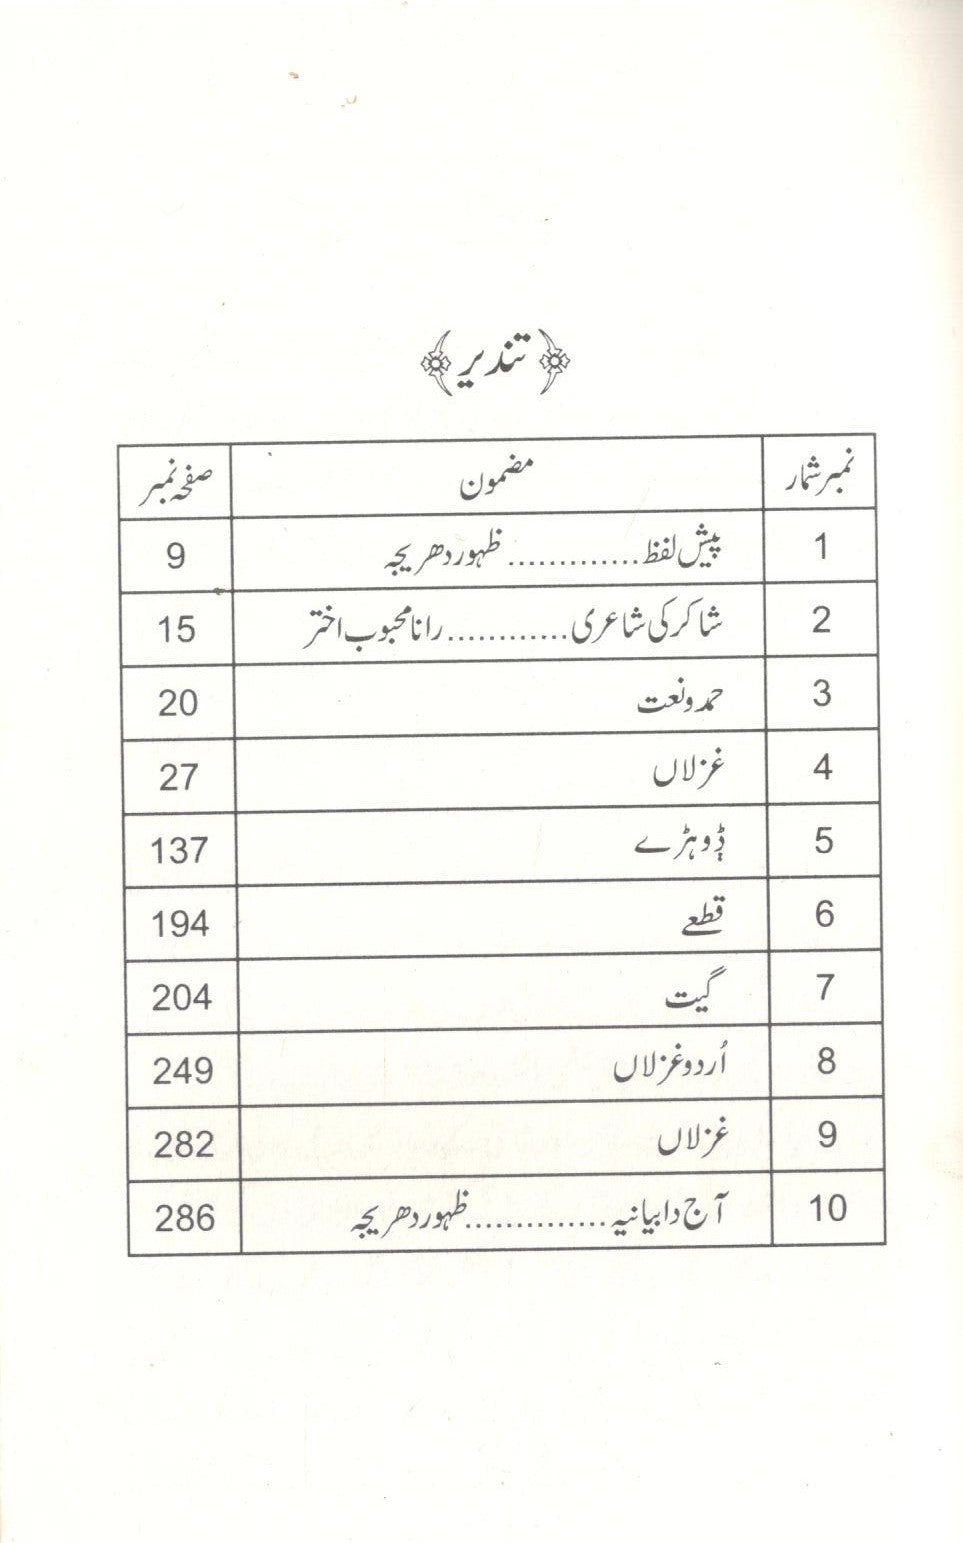 ﴿تندیر﴾
نمبر شمار مضمون صفحہ نمبر
1 پیش لفظ............. ظہور دھریجہ 9
2 شاکر کی شاعری............ رانا محبوب اختر 15
3 حمد و نعت 20
4 غزلاں 27
5 ڈوہڑے 137
6 قطعے 194
7 گیت 204
8 اُردو غزلاں 249
9 غزلاں 282
10 آج دا بیانیہ.............. ظہور دھریجہ 286